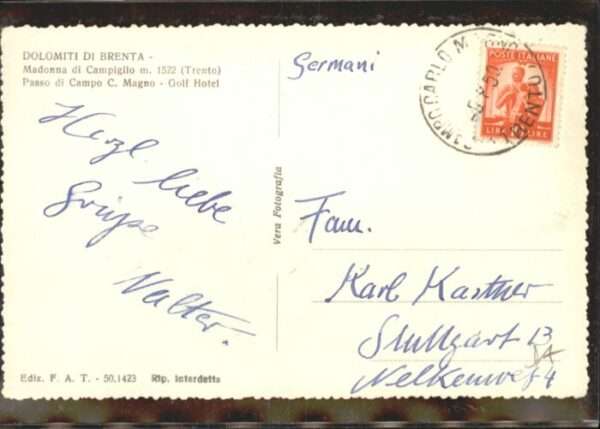 DOLOMITI DI BRENTA -
Madonna di Campiglio m. 1572 (Trento)
Passo di Campo C. Magno - Golf Hotel
Herzl. liebe
Grüsse
Walter.
Ediz. F. A. T. - 50.1423 Rip. interdetta
Vera Fotografia
Germani
POSTE ITALIANE
LIRE
CAMPO CARLO M
TRENTO
Fam.
Karl Kastner
Stuttgart 13
Nelkenweg 4